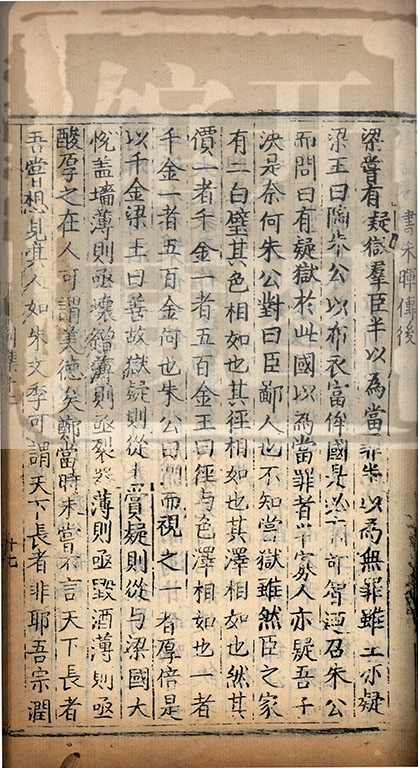 書朱暉傳後
梁嘗有疑獄羣臣半以為當罪半以為無罪雖王亦疑
梁王曰陶朱公以布衣富侔國是必有奇智廼召朱公
而問曰有疑獄於此國以為當罪者半寡人亦疑吾子
決是奈何朱公對曰臣鄙人也不知當獄雖然臣之家
有二白璧其色相如也其徑相如也其澤相如也然其
價一者千金一者五百金王曰徑与色澤相如也一者
千金一者五百金何也朱公曰側而視之一者厚倍是
以千金梁王曰善故獄疑則從去賞疑則從与梁國大
悅盖墻薄則亟壞繒薄則亟裂器薄則亟毀酒薄則亟
酸厚之在人可謂美德矣鄭當時未嘗不言天下長者
吾嘗想見其人如朱文季可謂天下長者非耶吾宗潤
十七